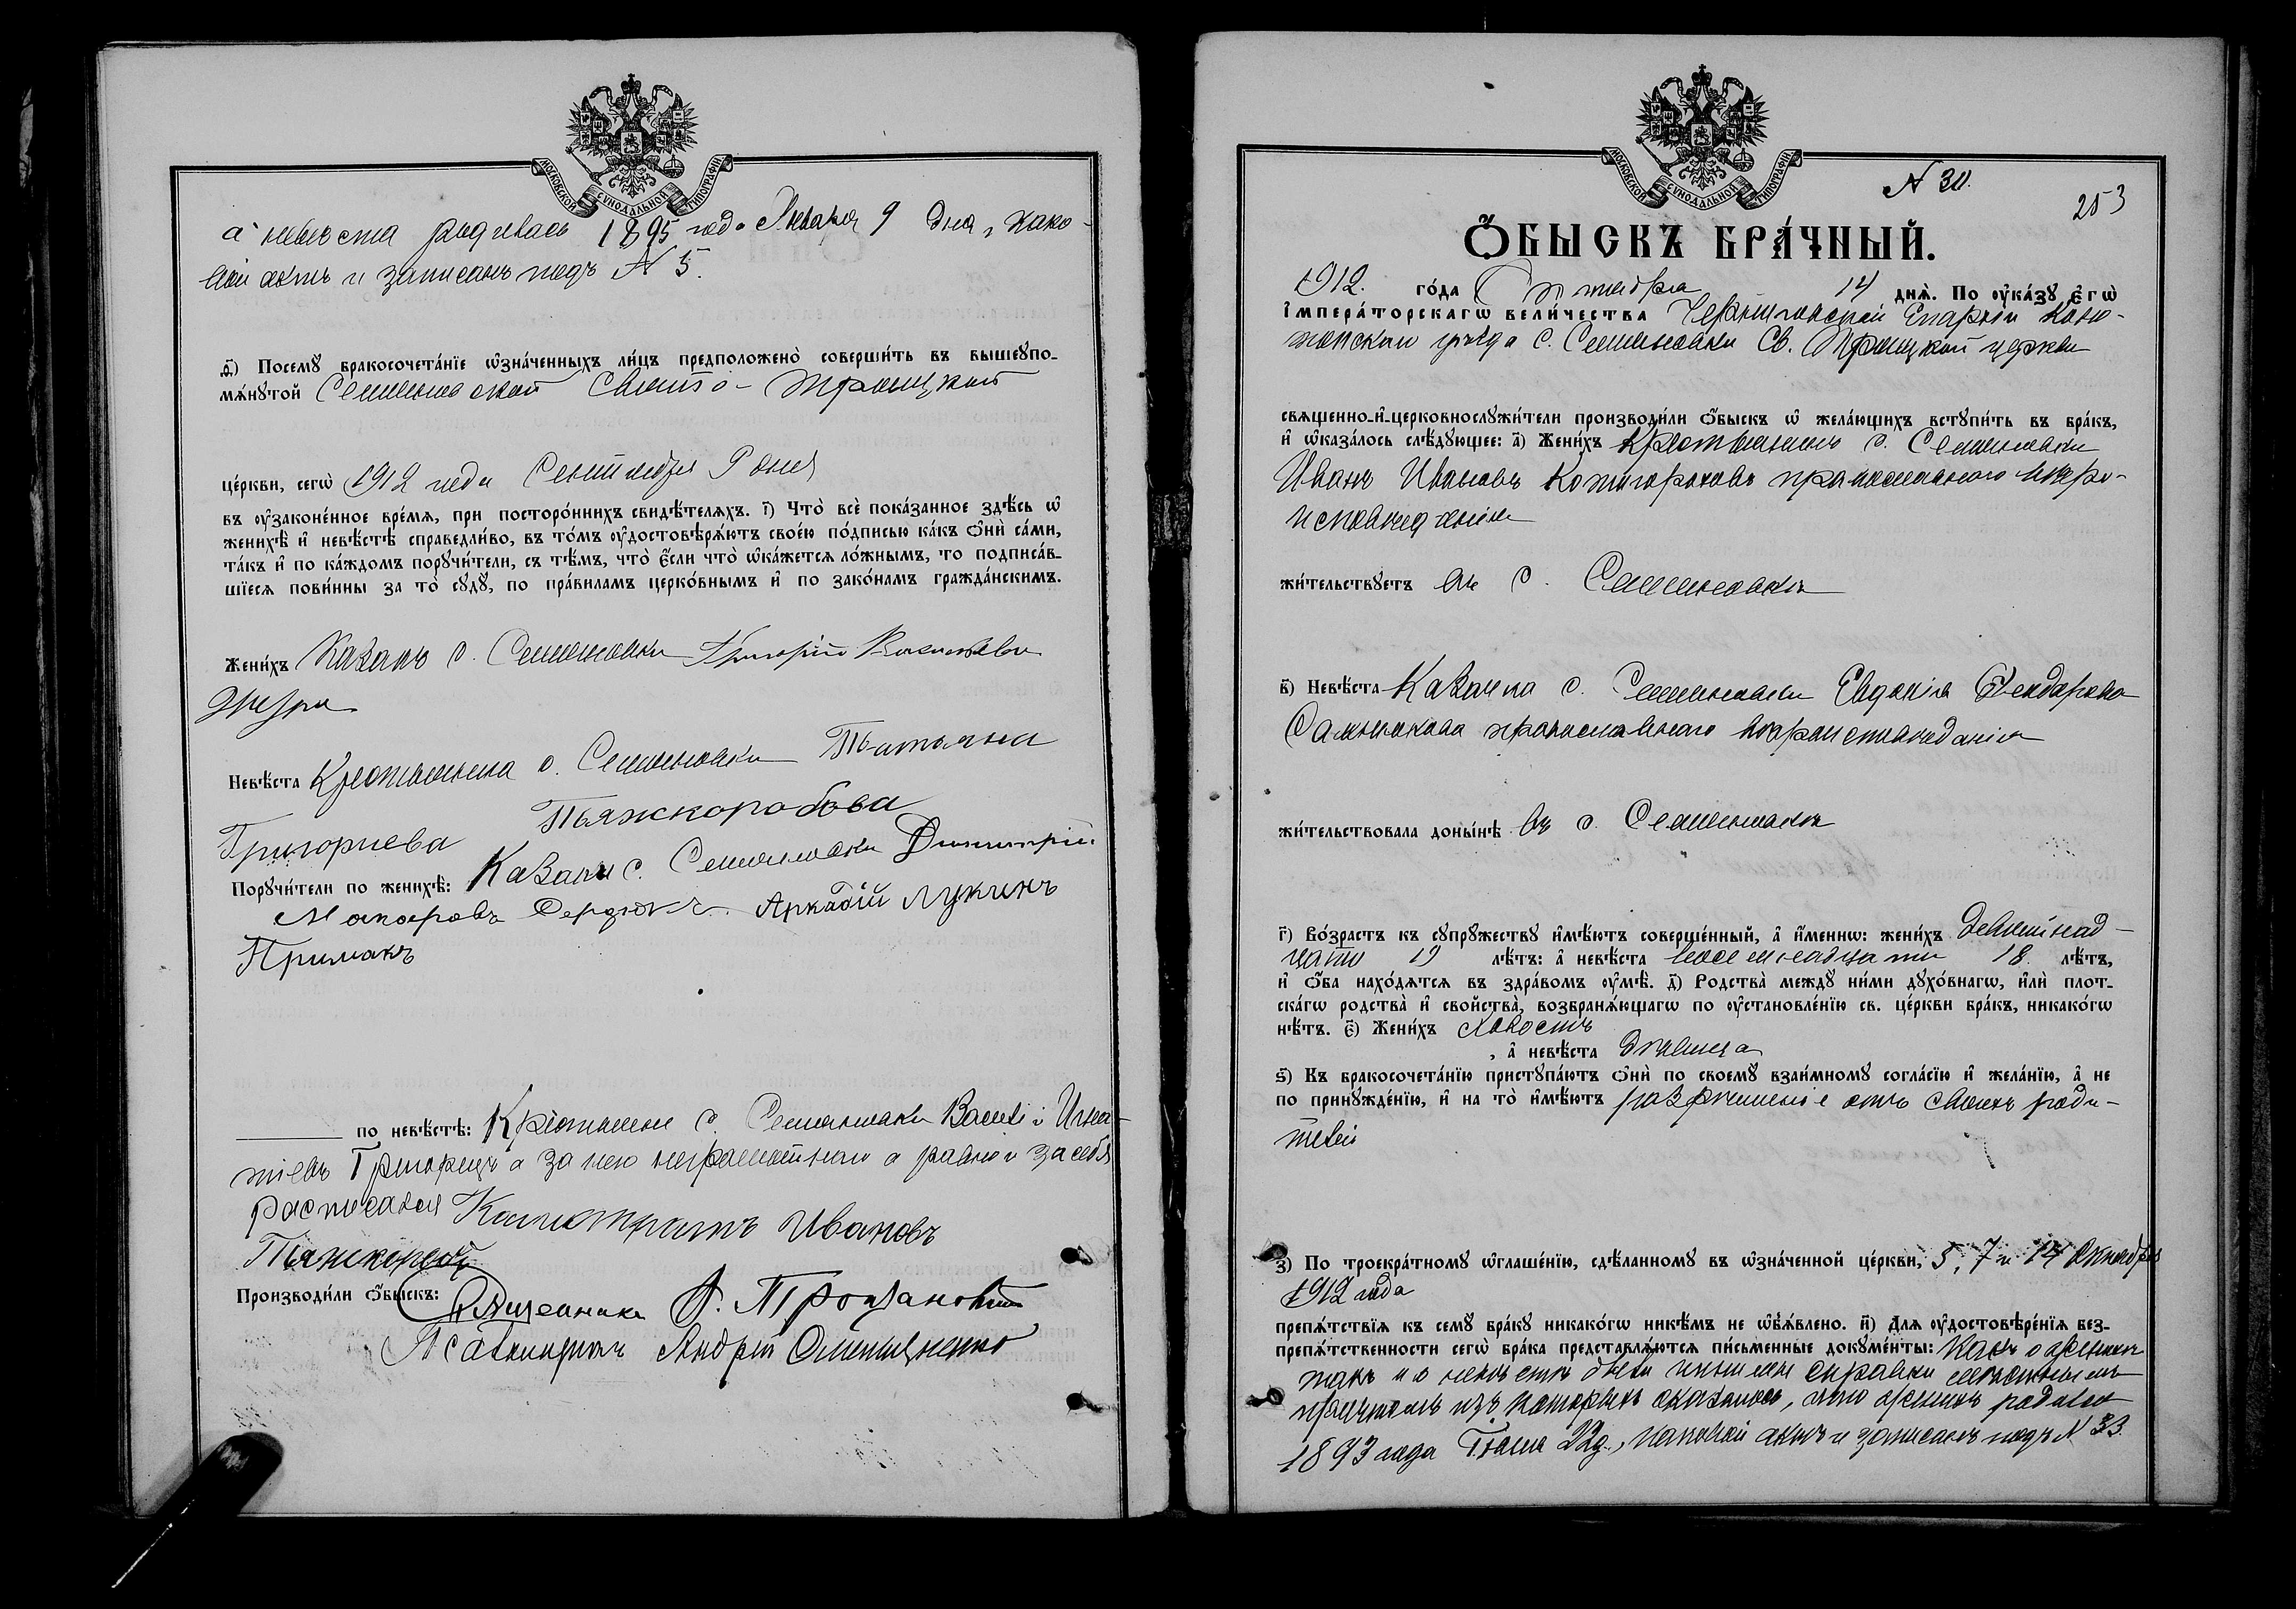 МОСКОВСКОЙ СѴНОДАЛЬНОЙ ТИПОГРАФІИ
а невѣста родилась 1895 года Января 9 дня, како-
вой актъ и записанъ подъ N 5.
д҃) Посемꙋ бракосочета́нїе ѡ҆зна́ченныхъ ли́цъ предположено̀ соверши́ть въ вышеꙋпо-
мѧ́нꙋтой Семеновской Свято-Троицкой
це́ркви, сегѡ̀ 1912 года Сентября 9 дня
въ ᲂу҆законе́нное вре́мѧ, при посторо́ннихъ свидѣ́телѧхъ. і҃) Что̀ всѐ пока́занное здѣ́сь ѡ҆
женихѣ̀ и҆ невѣ́стѣ справедли́во, въ то́мъ ᲂу҆достовѣрѧ́ютъ свое́ю по́дписью ка́къ ѻ҆нѝ са́ми,
та́къ и҆ по ка́ждомъ порꙋчи́тели, съ тѣ́мъ, что̀ є҆́сли что̀ ѡ҆ка́жетсѧ ло́жнымъ, то подписа́в-
шїесѧ пови́нны за то̀ сꙋдꙋ̀, по пра́виламъ церко́внымъ и҆ по зако́намъ гражда́нскимъ.
Жени́хъ Казакъ с. Семеновки Григорій
Невѣ́ста Крестьянка с. Семеновки Татьяна
Григорьева Тяжкоробова
Порꙋчи́тели по женихѣ̀: Казаки с. Семеновки Димитрій
Макаровъ Сердюкъ. Аркадій Лукинъ
Примакъ
по невѣ́стѣ: Крестьяне с. Семеновки Василій Игна-
тіевъ Григорецъ а за него неграмотнаго а равно и за себя
росписался Калистратъ Ивановъ
Тяжкороб
Производи́ли ѻ҆́быскъ: Священникъ
Псаломщикъ Андрей
МОСКОВСКОЙ СѴНОДАЛЬНОЙ ТИПОГРАФІИ
N 30.
253
Ѻ҆́БЫСКЪ БРА́ЧНЫЙ.
1912. го́да Октября 14 днѧ̀. По ᲂу҆ка́зꙋ є҆гѡ̀
і҆мпера́торскагѡ вели́чества Черниговской Епархіи Коно-
топскаго уѣзда с. Семеновки Св. Троицкой церкви
свѧщенно-и҆-церковнослꙋжи́тели производи́ли ѻ҆́быскъ ѡ҆ жела́ющихъ встꙋпи́ть въ бра́къ,
и҆ ѡ҆каза́лось слѣ́дꙋющее: а҃) Жени́хъ Крестьянинъ с. Семеновки
Иванъ Ивановъ православнаго вѣро-
исповѣданія
жи́тельствꙋетъ въ с. Семеновкѣ
в҃) Невѣ́ста Казачка с. Семеновки Евдокія Ѳеодорова
православнаго вѣроисповѣданія
жи́тельствовала доны́нѣ въ с. Семеновкѣ
г҃) Во́зрастъ къ сꙋпрꙋ́жествꙋ и҆мѣ́ютъ соверше́нный, а҆ и҆́менно: жени́хъ девятнад-
цати 19 лѣ́тъ: а҆ невѣ́ста восемнадцати 18. лѣ́тъ,
и҆ ѻ҆́ба нахо́дѧтсѧ въ здра́вомъ ᲂу҆мѣ̀. д҃) Родства̀ междꙋ̀ ни́ми дꙋхо́внагѡ, и҆лѝ плот-
ска́гѡ родства̀ и҆ свойства̀, возбранѧ́ющагѡ по ᲂу҆становле́нїю св. це́ркви бра́къ, никако́гѡ
нѣ́тъ. є҃) Жени́хъ холостъ
, а҆ невѣ́ста дѣвица
ѕ҃) Къ бракосочета́нїю пристꙋпа́ютъ ѻ҆нѝ по своемꙋ̀ взаи́мномꙋ согла́сїю и҆ жела́нїю, а҆ не
по принꙋжде́нїю, и҆ на то̀ и҆мѣ́ютъ разрѣшеніе отъ своихъ роди-
телей
з҃) По троекра́тномꙋ ѡ҆глаше́нїю, сдѣ́ланномꙋ въ ѡ҆зна́ченной це́ркви, 5, 7 и 14 Октября
1912 года
препѧ́тствїѧ къ семꙋ̀ бра́кꙋ никако́гѡ никѣ́мъ не ѡ҆б̾ѧ́влено. и҃) Длѧ ᲂу҆достовѣре́нїѧ без-
препѧ́тственности сегѡ̀ бра́ка представлѧ́ютсѧ пи́сьменные докꙋме́нты: Какъ о женихѣ
такъ и о невѣстѣ были справки мѣстнымъ
причтомъ изъ которыхъ оказалось, что женихъ родился
1893 года 22 д., каковой актъ и записанъ подъ N 33.